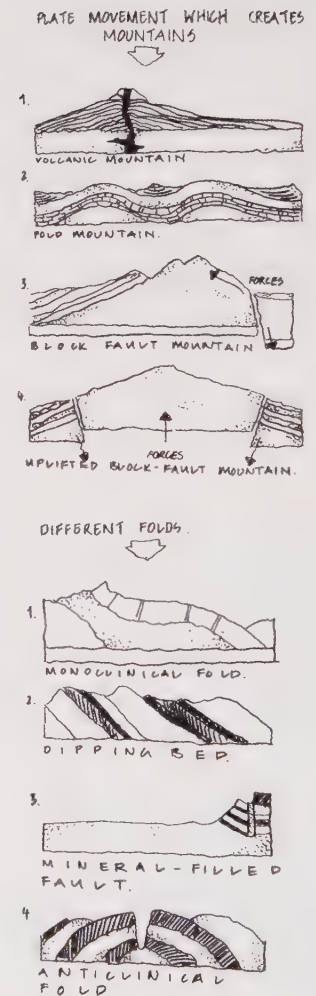 PLATE MOVEMENT WHICH CREATES
MOUNTAINS
1.
VOLCANIC MOUNTAIN
2.
FOLD MOUNTAIN.
3.
FORCES
BLOCK FAULT MOUNTAIN
4.
FORCES
UPLIFTED BLOCK-FAULT MOUNTAIN.
DIFFERENT FOLDS.
1.
MONOCLINICAL FOLD.
2.
DIPPING BED.
3.
MINERAL-FILLED
FAULT.
4
ANTICLINICAL
FOLD